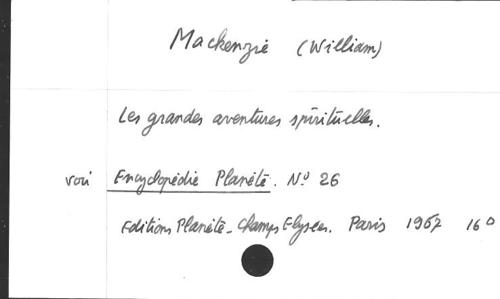 Mackenzie (William)
Les grandes aventures spirituelles.
voir Encyclopédie Planète. N° 26
Editions Planète - Champs Elysées. Paris 1967 16°